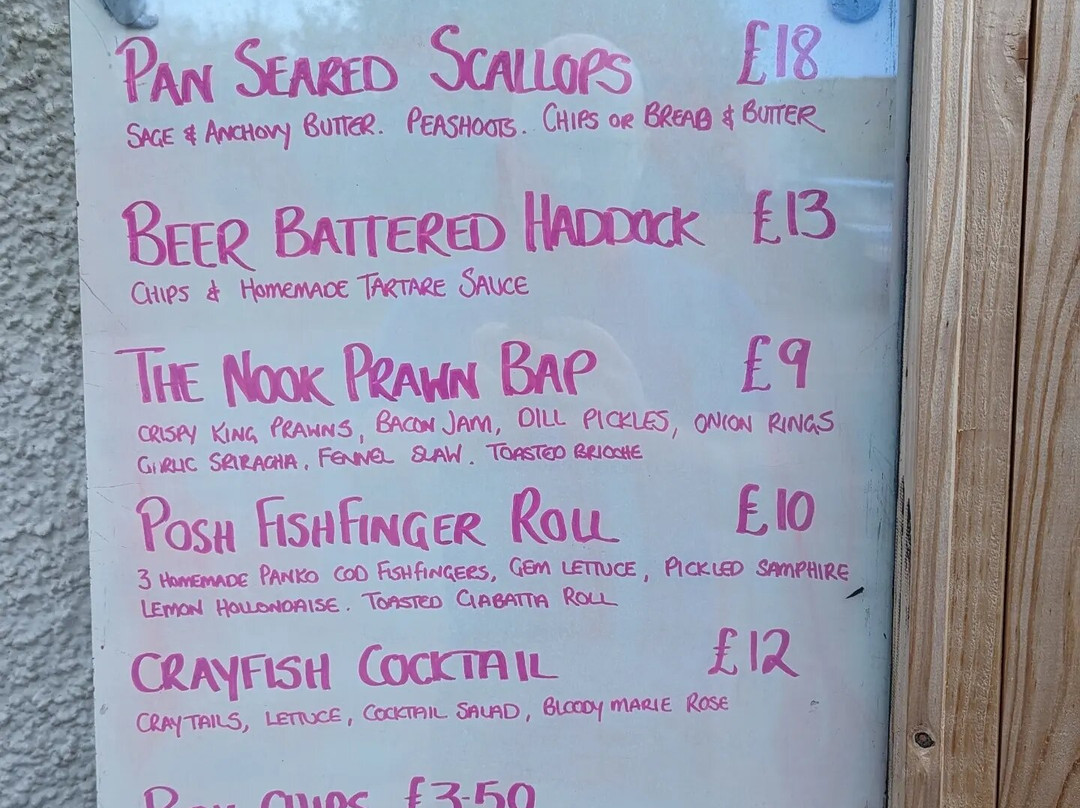 PAN SEARED SCALLOPS £18
SAGE & ANCHOVY BUTTER. PEASHOOTS. CHIPS OR BREAD & BUTTER
BEER BATTERED HADDOCK £13
CHIPS & HOMEMADE TARTARE SAUCE
THE NOOK PRAWN BAP £9
CRISPY KING PRAWNS, BACON JAM, DILL PICKLES, ONION RINGS
GIRLIC SRIRACHA, FENNEL SLAW. TOASTED BRIOCHE
POSH FISHFINGER ROLL £10
3 HOMEMADE PANKO COD FISHFINGERS, GEM LETTUCE, PICKLED SAMPHIRE
LEMON HOLLONDAISE. TOASTED CIABATTA ROLL
CRAYFISH COCKTAIL £12
CRAYTAILS, LETTUCE, COCKTAIL SALAD, BLOODY MARIE ROSE
CHIPS £3.50